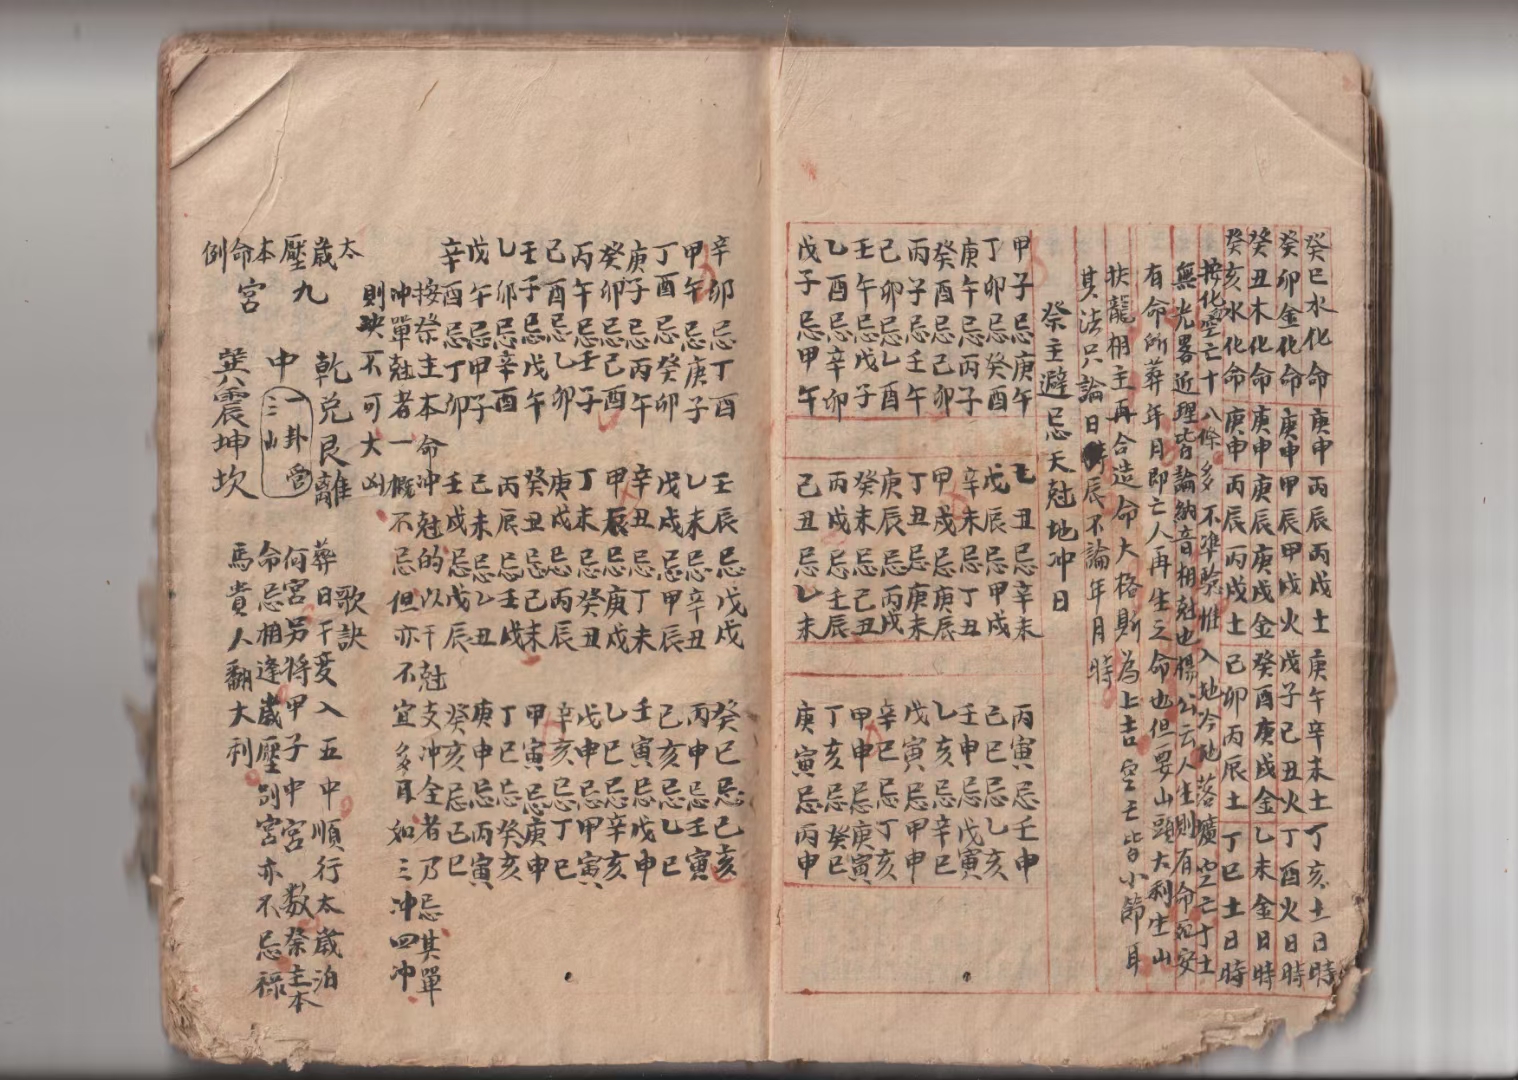 癸巳水化命 庚申 丙辰 丙戌土 庚午辛未土 丁亥土日時
癸卯金化命 庚申 甲辰 甲戌火 戊子己丑火 丁酉火日時
癸丑木化命 庚申 庚辰 庚戌金 癸酉庚戌金 乙未金日時
癸亥水化命 庚申 丙辰 丙戌土 己卯丙辰土 丁巳土日時
按化空亡十八條多不準驗惟入地今地落壙空亡丁土
無光畧近理皆論納音相尅也楊公云人生則有命死安
有命所葬年月即亡人再生之命也但要山頭大利生山
扶龍相主再合造命大格則為上吉空亡皆小節耳
其法只論日時辰不論年月時
祭主避忌天尅地冲日
甲子忌庚午 乙丑忌辛未 丙寅忌壬申
丁卯忌癸酉 戊辰忌甲戌 己巳忌乙亥
庚午忌丙子 辛未忌丁丑 壬申忌戊寅
癸酉忌己卯 甲戌忌庚辰 乙亥忌辛巳
丙子忌壬午 丁丑忌庚未 戊寅忌甲申
己卯忌乙酉 庚辰忌丙戌 辛巳忌丁亥
壬午忌戊子 癸未忌己丑 甲申忌庚寅
乙酉忌辛卯 丙戌忌壬辰 丁亥忌癸巳
戊子忌甲午 己丑忌乙未 庚寅忌丙申
辛卯忌丁酉 壬辰忌戊戌 癸巳忌己亥
甲午忌庚子 乙未忌辛丑 丙申忌壬寅
丁酉忌癸卯 戊戌忌甲辰 己亥忌乙巳
庚子忌丙午 辛丑忌丁未 壬寅忌戊申
癸卯忌己酉 甲辰忌庚戌 乙巳忌辛亥
丙午忌壬子 丁未忌癸丑 戊申忌甲寅
己酉忌乙卯 庚戌忌丙辰 辛亥忌丁巳
壬子忌戊午 癸丑忌己未 甲寅忌庚申
乙卯忌辛酉 丙辰忌壬戌 丁巳忌癸亥
戊午忌甲子 己未忌乙丑 庚申忌丙寅
辛酉忌丁卯 壬戌忌戊辰 癸亥忌己巳
按祭主本命冲尅的以干尅支冲全者乃忌其單
冲單尅者一概不忌但亦不宜多耳如三冲四冲
則决不可大凶
太歲壓本命例
九宮
乾兌艮離
中
一卦管
三山
巽震坤坎
歌訣
葬日干支入五中順行太歲泊
何宮另將甲子中宮数祭主本
命忌相逢歲壓別宮亦不忌祿
馬貴人翻大利